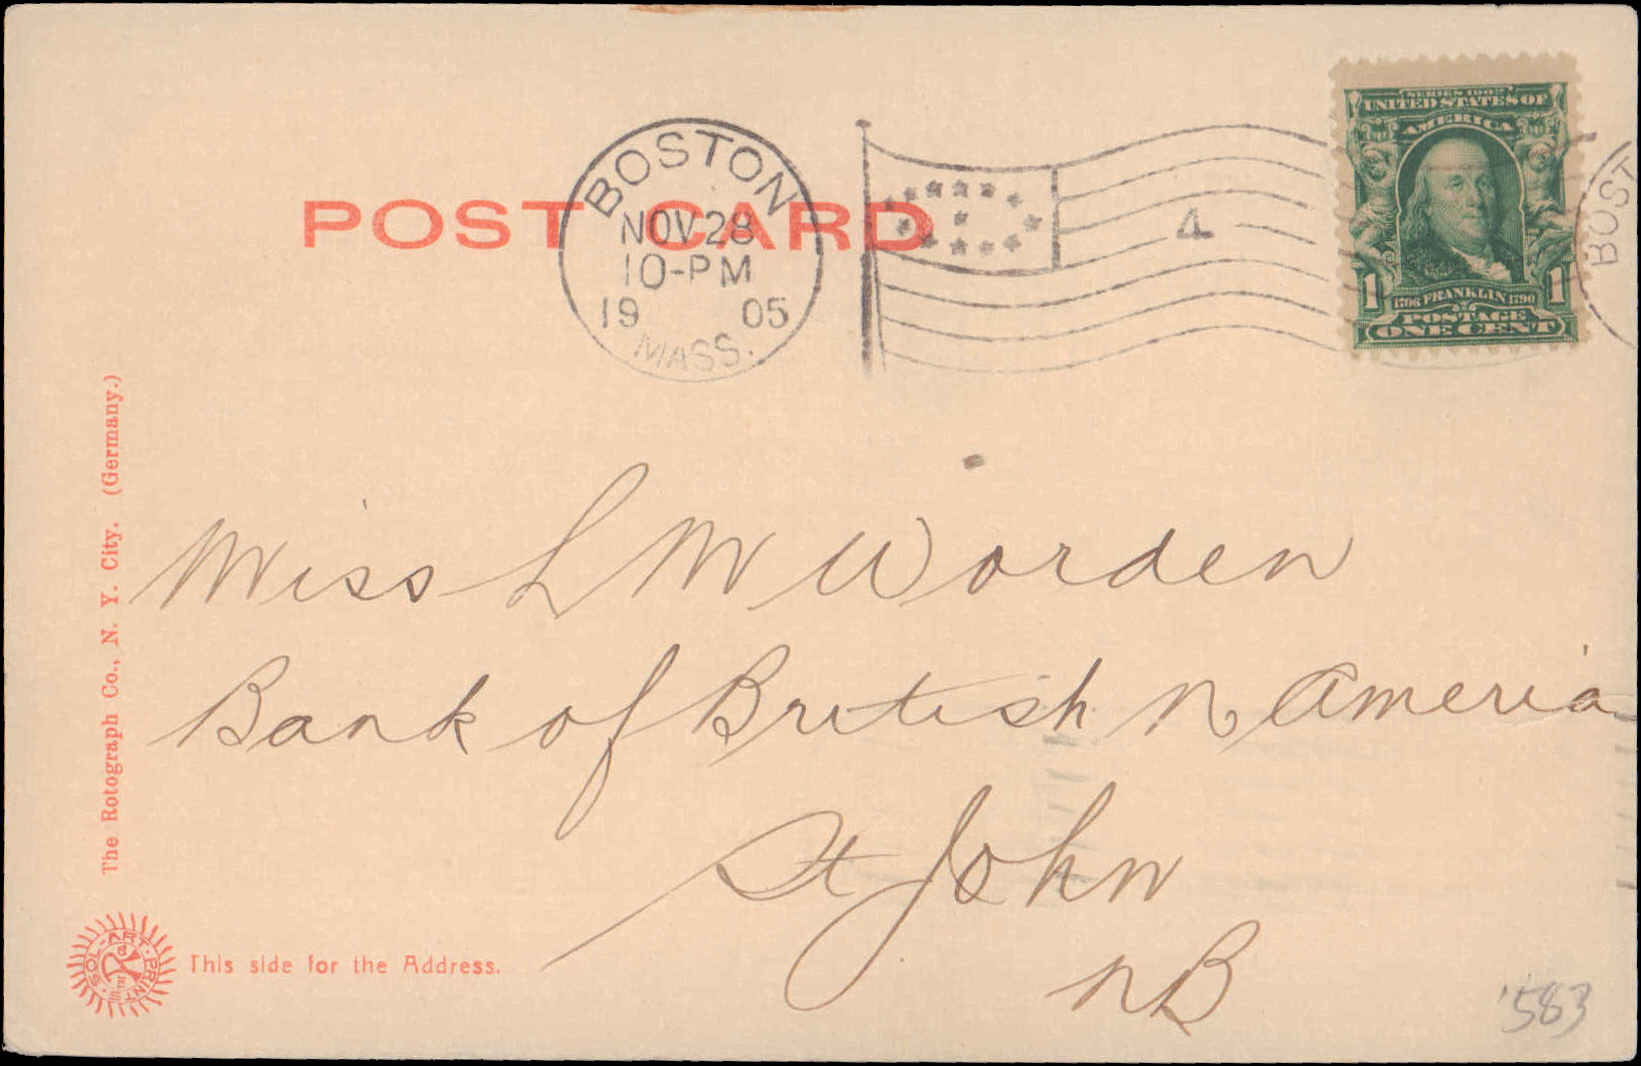 SERIES 1902
UNITED STATES OF
AMERICA
1706 FRANKLIN 1790
1 1
POSTAGE
ONE CENT
BOSTON
NOV 28
10-PM
19 05
MASS.
4
BOST
POST CARD
Miss L M Worden
Bank of British N Ameria
St John
NB
The Rotograph Co., N. Y. City. (Germany.)
SOL-ART-PRINT
This side for the Address.
'583